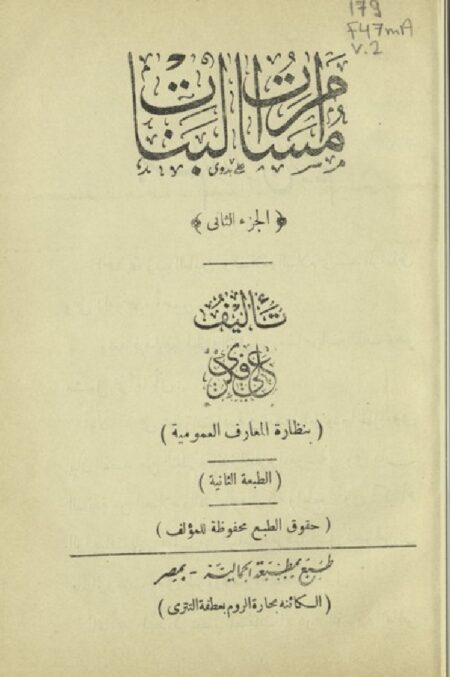 179
F47mA
v.2
مسامرات البنات
﴿ الجزء الثانى ﴾
تأليف
على فكرى
( بنظارة المعارف العمومية )
( الطبعة الثانية )
( حقوق الطبع محفوظة للمؤلف )
طبع بمطبعة الجمالية - بمصر
( الكائنه بحارة الروم بعطفة التترى )